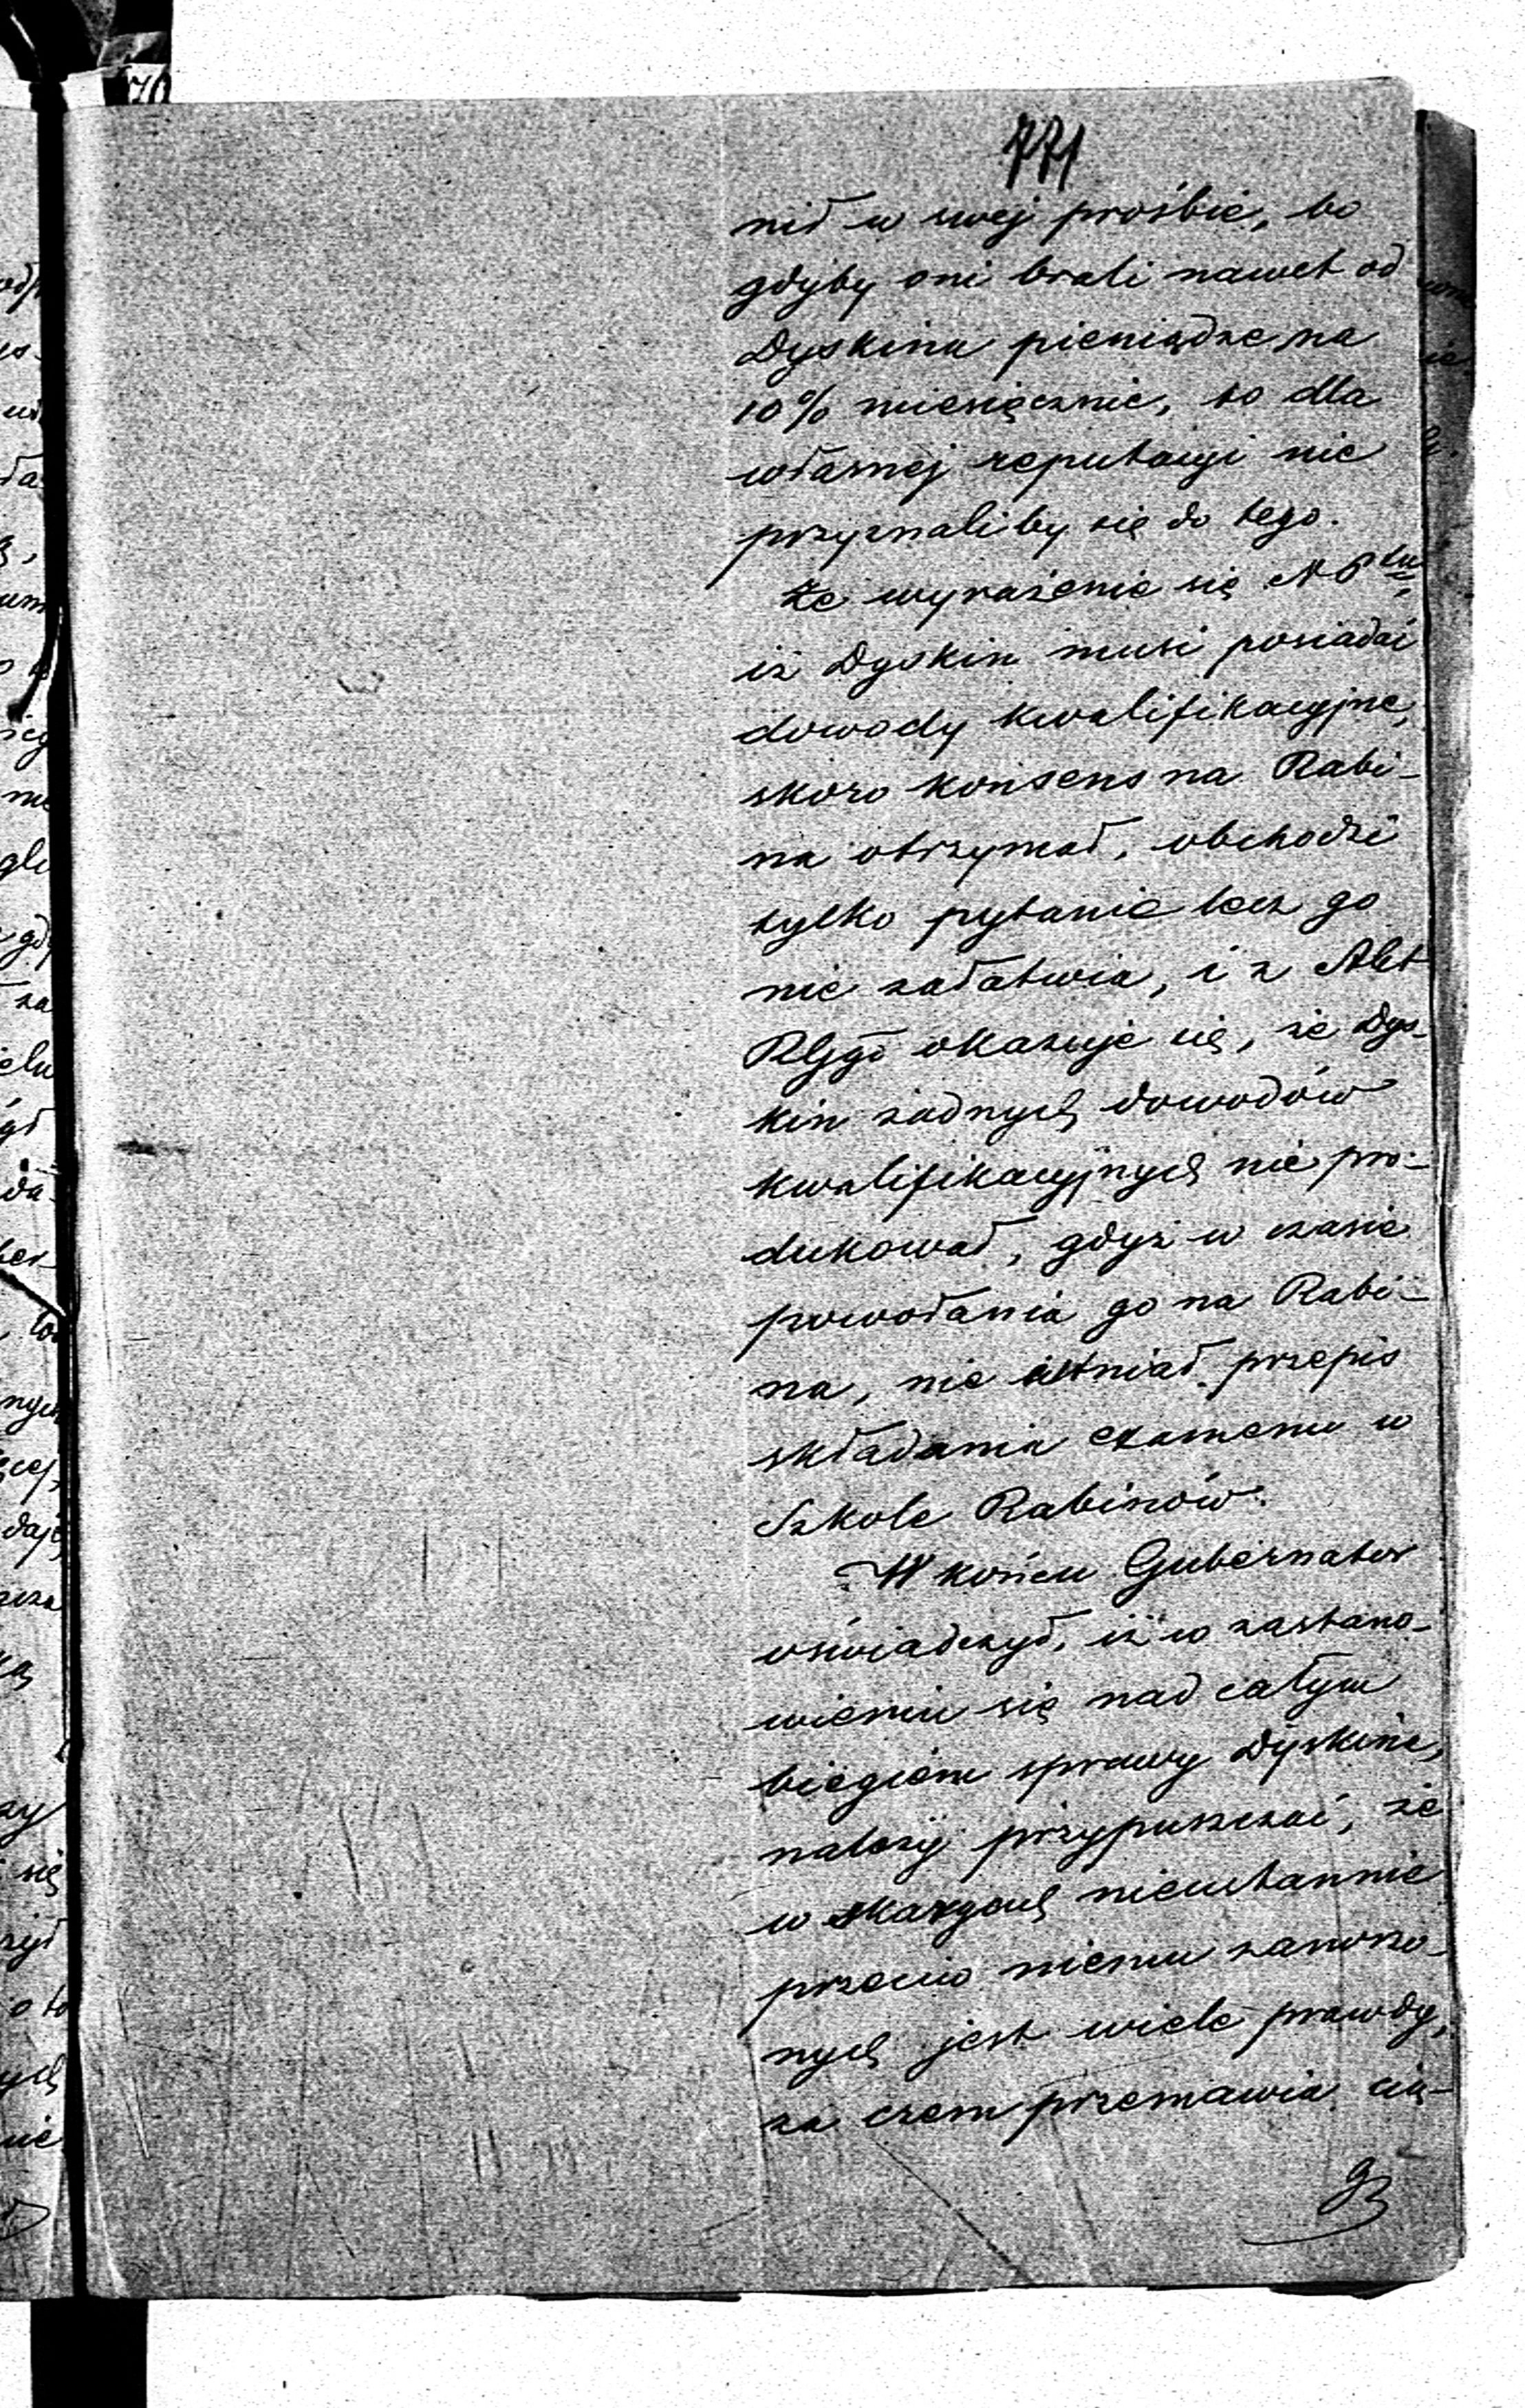 771
nił w swej prośbie, bo
gdyby oni brali nawet od
Dyskina pieniądze na
10% miesięcznie, to dla
własnej reputacyi nie
przyznaliby się do tego.
Że wyrażenie się
iż Dyskin musi posiadać
dowody kwalifikacyjne,
skoro konsens na Rabi-
na otrzymał, obchodzi
tylko pytanie lecz go
nie załatwia, i z Akt
okazuje się, że Dys-
kin żadnych dowodów
kwalifikacyjnych nie pro-
dukował, gdyż w czasie
powołania go na Rabi-
na, nie istniał przepis
składania examenu w
Szkole Rabinów.
W końcu Gubernator
oświadczył, iż w zastano-
wieniu się nad całym
biegiem sprawy Dyskina,
należy przypuszczać, że
w skargach nieustannie
przeciw niemu zanoszo-
nych jest wiele prawdy,
za czem przemawia cią-